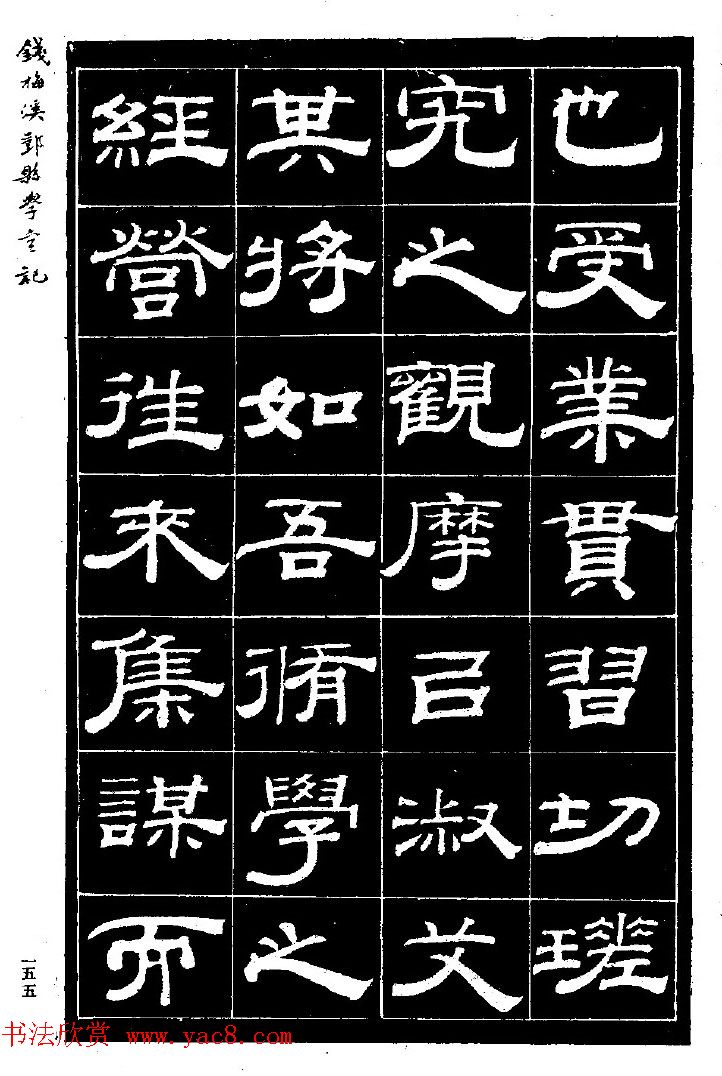 錢梅溪鄞縣學宮記
也受業貫習切瑳
究之觀摩㠯淑艾
其將如吾脩學之
經營徃來集謀而
一五五
书法欣赏 www.yac8.com